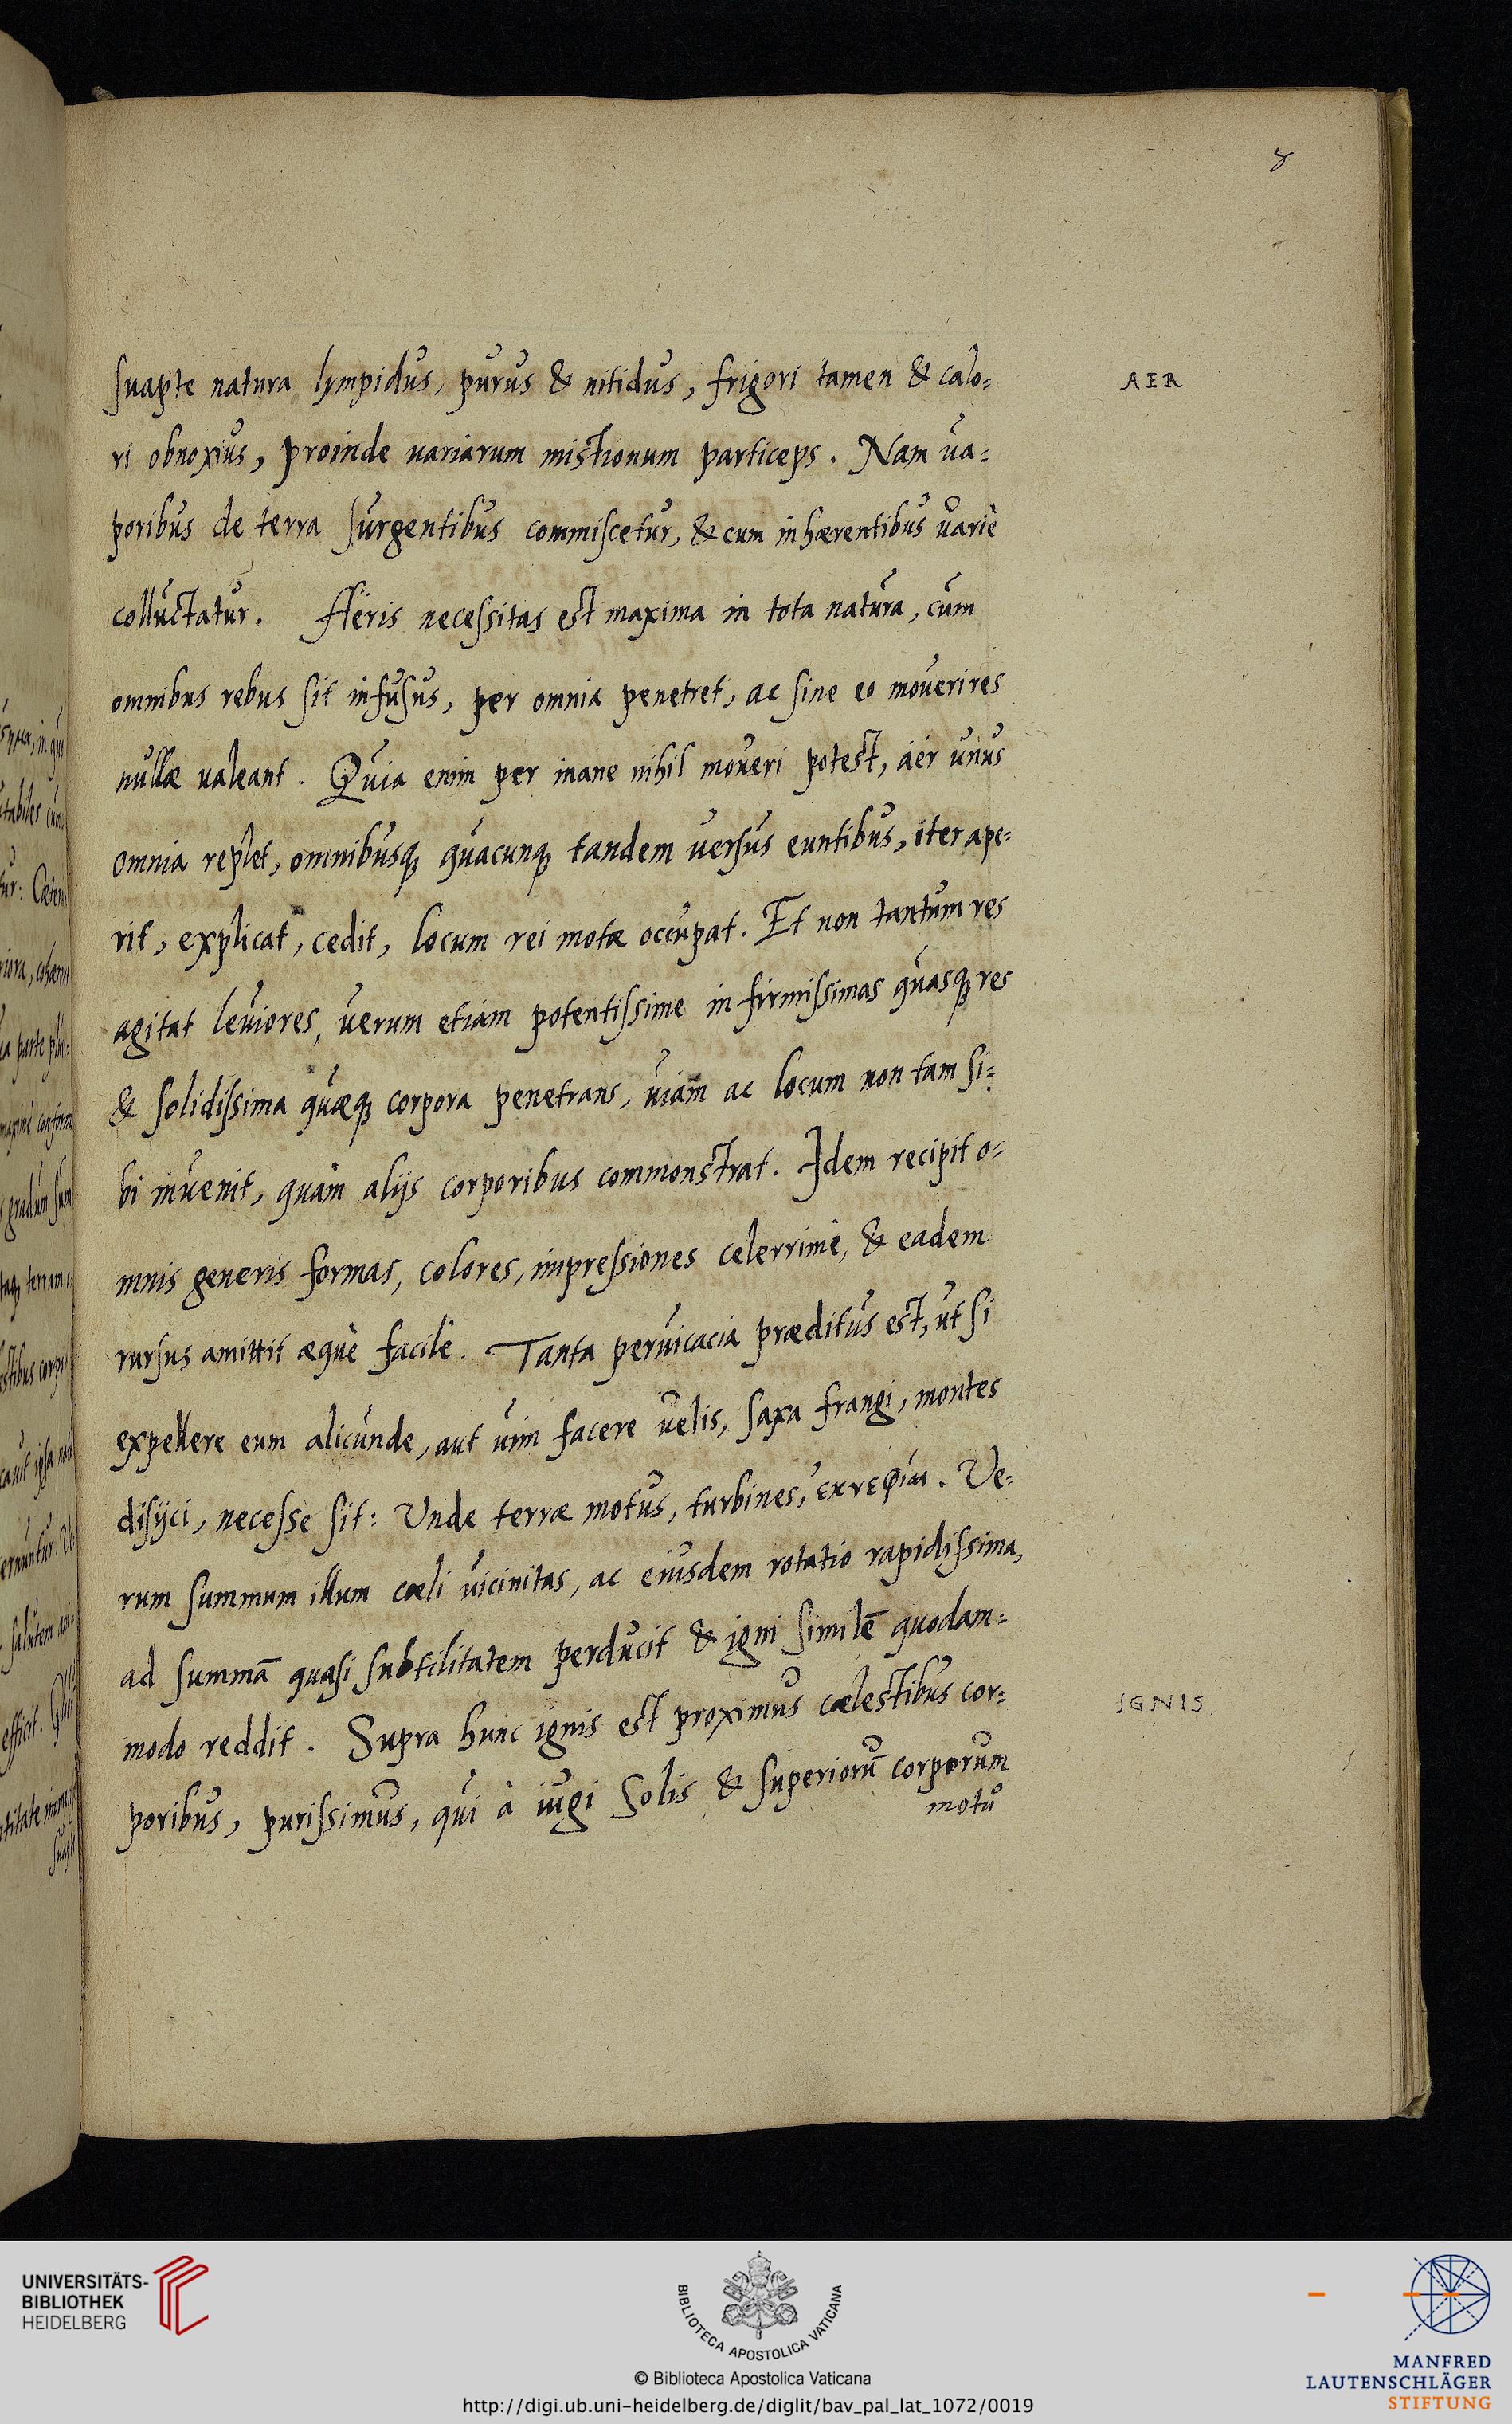 8
suapte natura lympidus, purus & nitidus, frigori tamen & calo=
AER
ri obnoxius, proinde variarum mistionum particeps. Nam va=
poribus de terra surgentibus commiscetur, & cum inhærentibus variè
colluctatur. Aëris necessitas est maxima in tota natura, cùm
omnibus rebus sit infusus, per omnia penetret, ac sine eo moveri res
nullæ valeant. Quia enim per inane nihil moveri potest, aër unus
omnia replet, omnibusq quacunq tandem versus euntibus, iter ape=
rit, explicat, cedit, locum rei motæ occupat. Et non tantum res
agitat leviores, verum etiam potentissime in firmissimas quasq res
& solidissima quæq corpora penetrans, viam ac locum non tam si=
bi invenit, quàm alijs corporibus commonstrat. Idem recipit o=
mnis generis formas, colores, impressiones celerrimè, & eadem
rursus amittit æquè facilè. Tanta pervicacia præditus est, ut si
expellere eum alicunde, aut vim facere velis, saxa frangi, montes
disijci, necesse sit: Unde terræ motus, turbines, ἐκνεφίαι. Ve=
rum summum illum cæli vicinitas, ac eiusdem rotatio rapidissima,
ad summā quasi subtilitatem perducit & igni similē quodam=
modo reddit. Supra hunc ignis est proximus cælestibus cor=
IGNIS
poribus, purissimus, qui à iugi Solis & superiorū corporum
motu
UNIVERSITÄTS-
BIBLIOTHEK
HEIDELBERG
BIBLIOTECA APOSTOLICA VATICANA
© Biblioteca Apostolica Vaticana
http://digi.ub.uni-heidelberg.de/diglit/bav_pal_lat_1072/0019
MANFRED
LAUTENSCHLÄGER
STIFTUNG